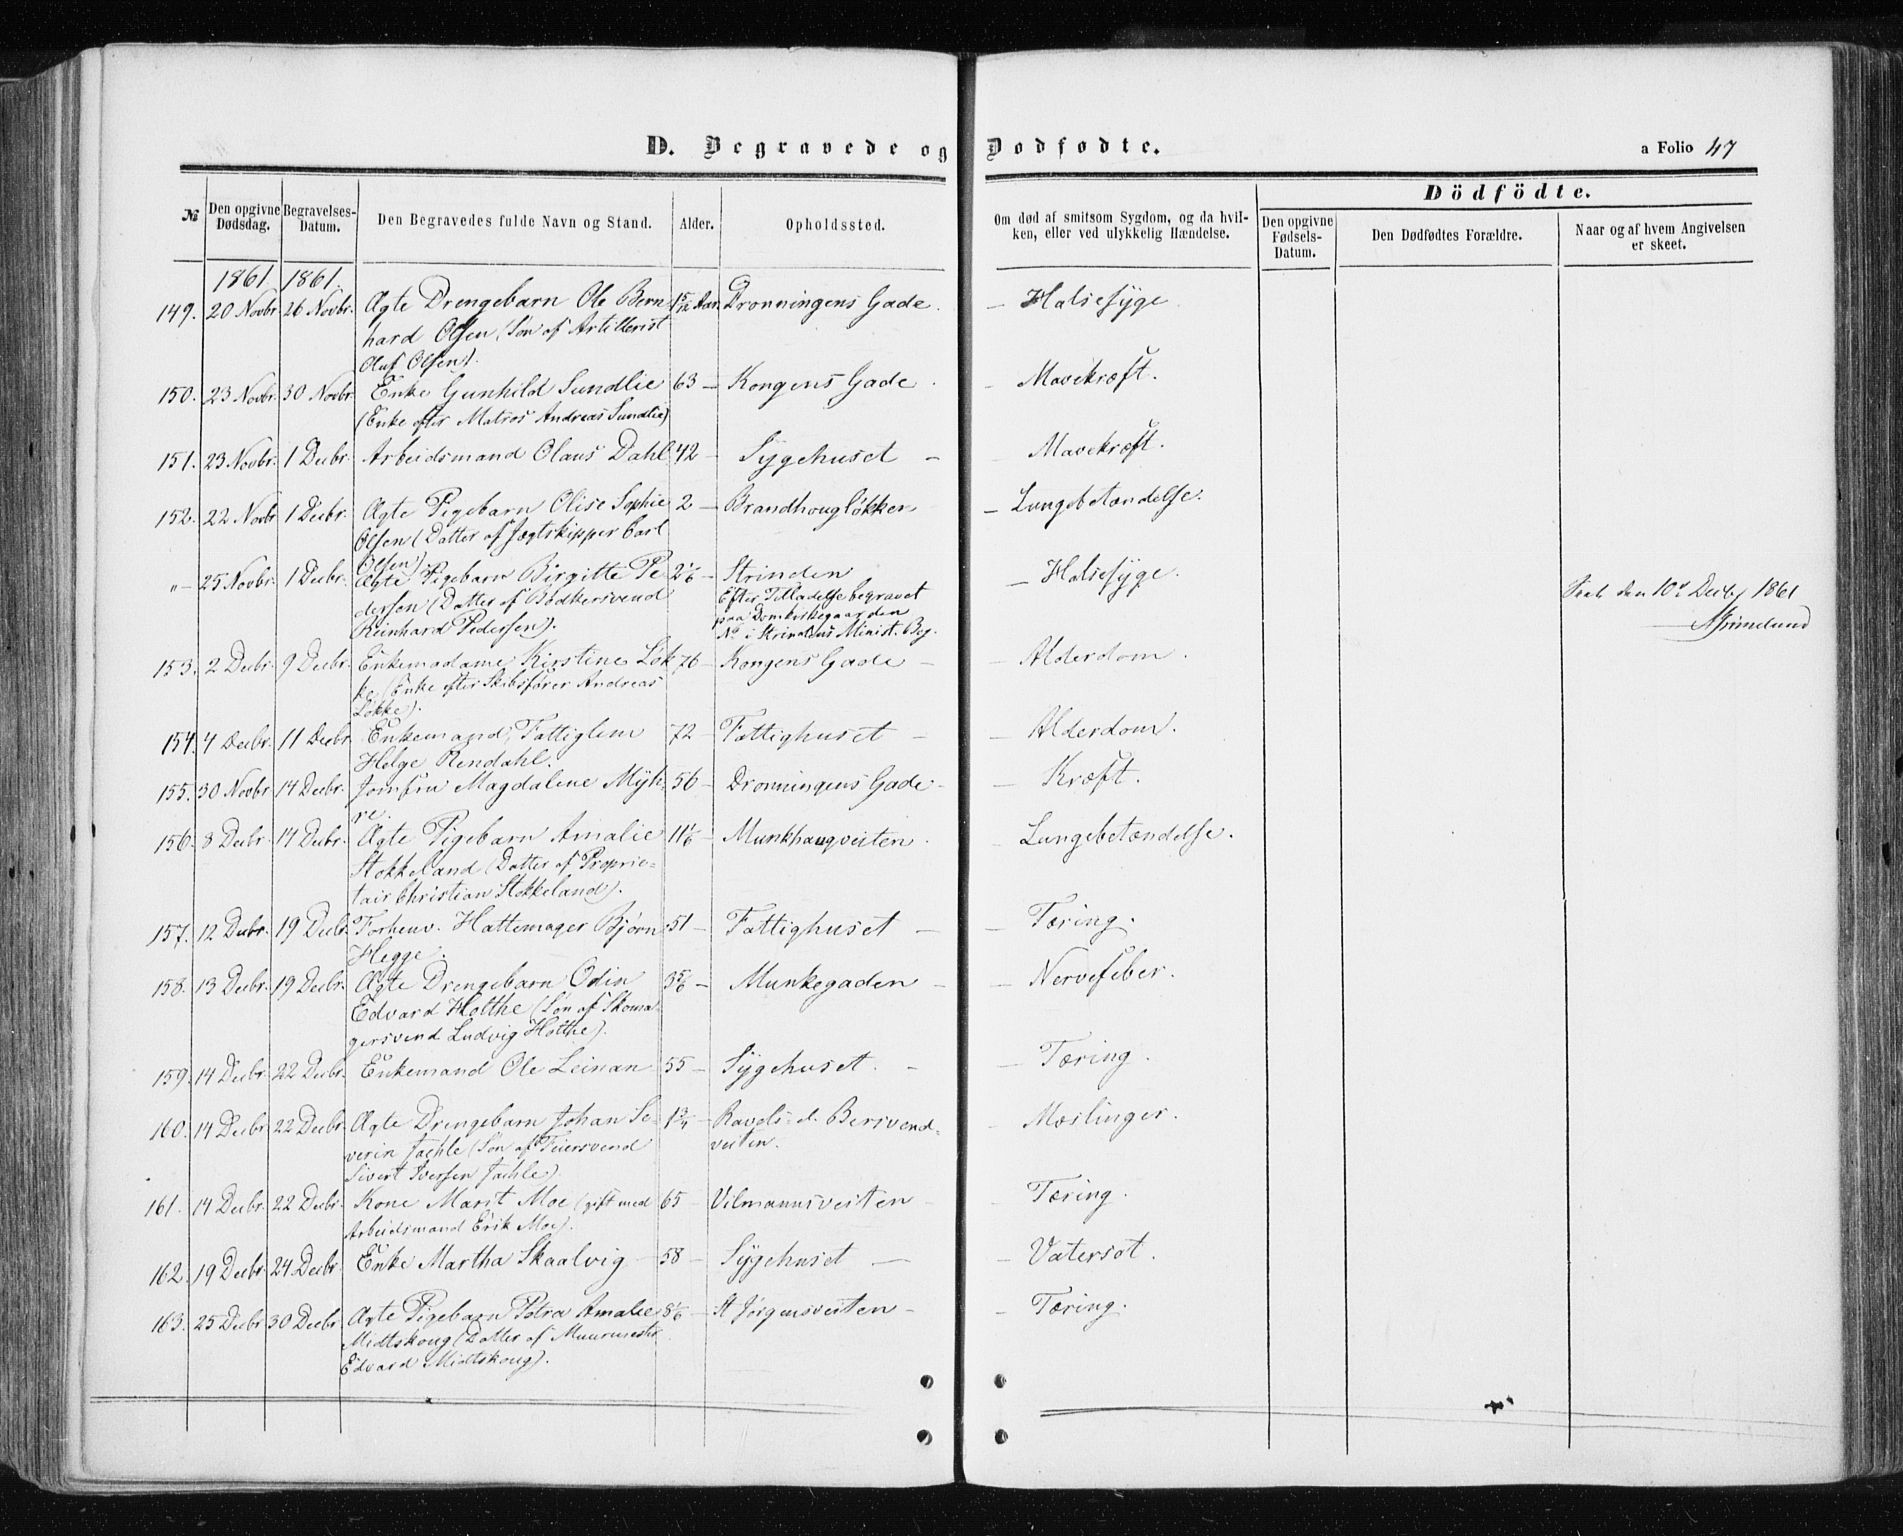 D. Begravede og Dödfödte.
a Folio 47
Dödfödte.
№
Den opgivne Dødsdag.
Begravelses-Datum.
Den Begravedes fulde Navn og Stand.
Alder.
Opholdssted.
Om død af smitsom Sygdom, og da hvil-
ken, eller ved ulykkelig Hændelse.
Den opgivne Fødsels-Datum.
Den Dødfødtes Forældre.
Naar og af hvem Angivelsen
er skeet.
1861 1861.
149. 20 Novbr. 26 Novbr. Ægte Drengebarn Ole Bern- Aar Dronningens Gade. — Halsesyge
hard Olsen (Søn af Artillerist
Oluf Olsen).
150. 23 Novbr. 30 Novbr. Enke Gunhild Sundlie 63 — Kongens Gade. — Mavekræft.
(Enke efter Matros Andreas Sundlie)
151. 23 Novbr. 1 Decbr. Arbeidsmand Olaus Dahl 42 — Sygehuset — Mavekræft.
152. 22 Novbr 1 Decbr. Ægte Pigebarn Olise Sophie 2 — Brandhougløkken — Lungebetændelse.
Olsen (Datter af Jægtskipper Carl
Olsen)
"— 25 Novbr. 1 Decbr. Ægte Pigebarn Birgitte Pe- 2 1/6 — Strinden — Halsesyge.
dersen (Datter af Bødkersvend Efter Tilladelse begravet
Reinhard Pedersen). paa Domkirkegaarden
No i Strindens Minist. Bog.
Seet den 10de Decbr 1861
Grimelund
153. 2 Decbr. 9 Decbr. Enkemadame Kirstine Løk- 76 — Kongens Gade — Alderdom.
ke (Enke efter Skibsfører Andreas
Løkke).
154. 4 Decbr. 11 Decbr. Enkemand, Fattiglem 72 — Fattighuset — Alderdom.
Helge Rendahl.
155. 30 Novbr 14 Decbr. Jomfru Magdalene Myh- 56 — Dronningens Gade — Kræft.
re.
156. 8 Decbr. 14 Decbr. Ægte Pigebarn Amalie 11 1/6 — Munkhaugveiten. — Lungebetændelse.
Stokkeland (Datter af Proprie-
tair Christian Stokkeland).
157. 12 Decbr. 19 Decbr. Forhenv. Hattemager Bjørn 51 — Fattighuset — Tæring.
Hegge.
158. 13 Decbr. 19 Decbr. Ægte Drengebarn Odin 3 5/6 — Munkegaden — Nervefeber.
Edvard Holthe (Søn af Skoma-
gersvend Ludvig Holthe).
159. 14 Decbr. 22 Decbr. Enkemand Ole Leinan 55 — Sygehuset. — Tæring.
160. 14 Decbr. 22 Decbr. Ægte Drengebarn Johan Se- 1 3/4 — Ravels- d. Bersvend- — Mæslinger.
verin Jæhle (Søn af Feiersvend veiten.
Sivert Iversen Jæhle).
161. 14 Decbr. 22 Decbr. Kone Marit Moe (gift med 65 — Vilmannsveiten — Tæring.
Arbeidsmand Erik Moe).
162. 19 Decbr 24 Decbr. Enke Martha Skaalvig — 58 — Sygehuset — Vatersot.
163. 25 Decbr 30 Decbr. Ægte Pigebarn Petra Amalie 8 1/6 — St Jørgensveiten — Tæring.
Midtskoug (Datter af Muurmester
Edvard Midtskoug).